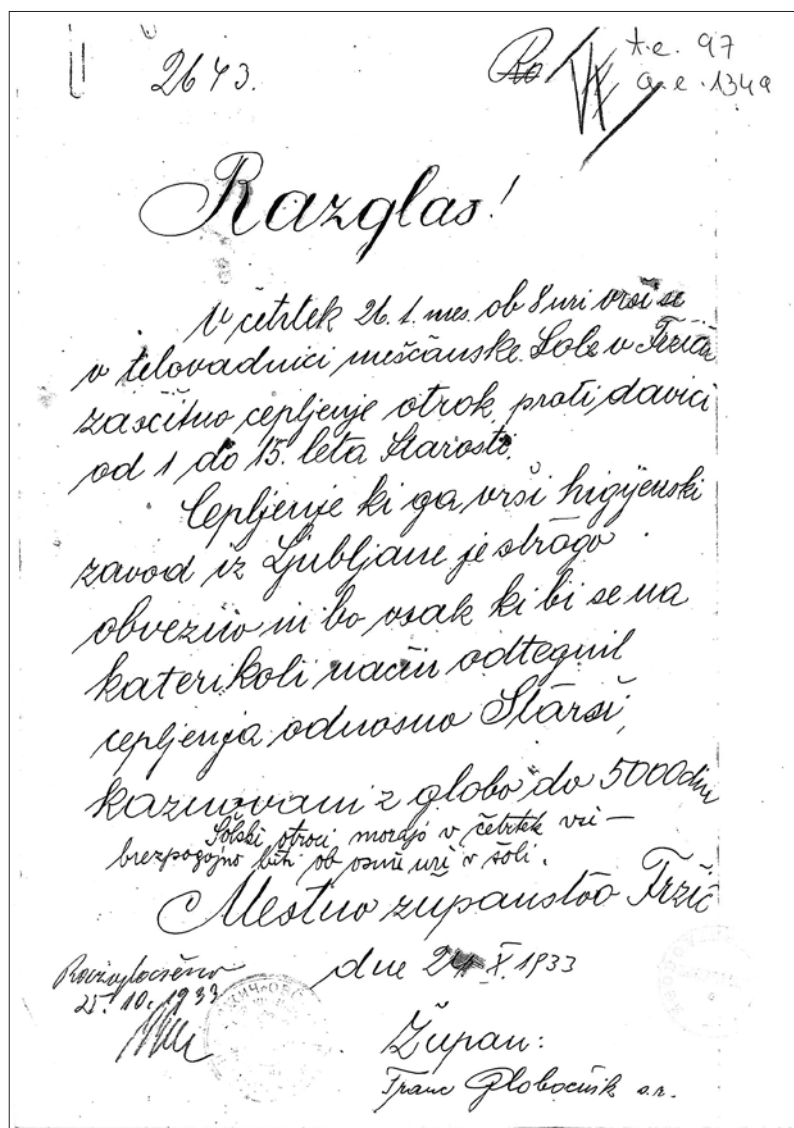 2643.
t.e. 97
a.e. 1349
Razglas!
V četrtek 26. t. mes. ob 8 uri vrši se
v telovadnici meščanske šole v Tržiču
zaščitno cepljenje otrok proti davici
od 1 do 15. leta starosti.
Cepljenje ki ga vrši higijenski
zavod iz Ljubljane je strogo
obvezno in bo vsak ki bi se na
katerikoli način odtegnil
cepljenja odnosno Starši,
kaznovani z globo do 5000 din
Šolski otroci morajo v četrtek vsi –
brezpogojno biti ob osmi uri v šoli.
Mestno županstvo Tržič
dne 24. X. 1933
Razglašeno
25. 10. 1933
Župan:
Franc Globočnik s.r.